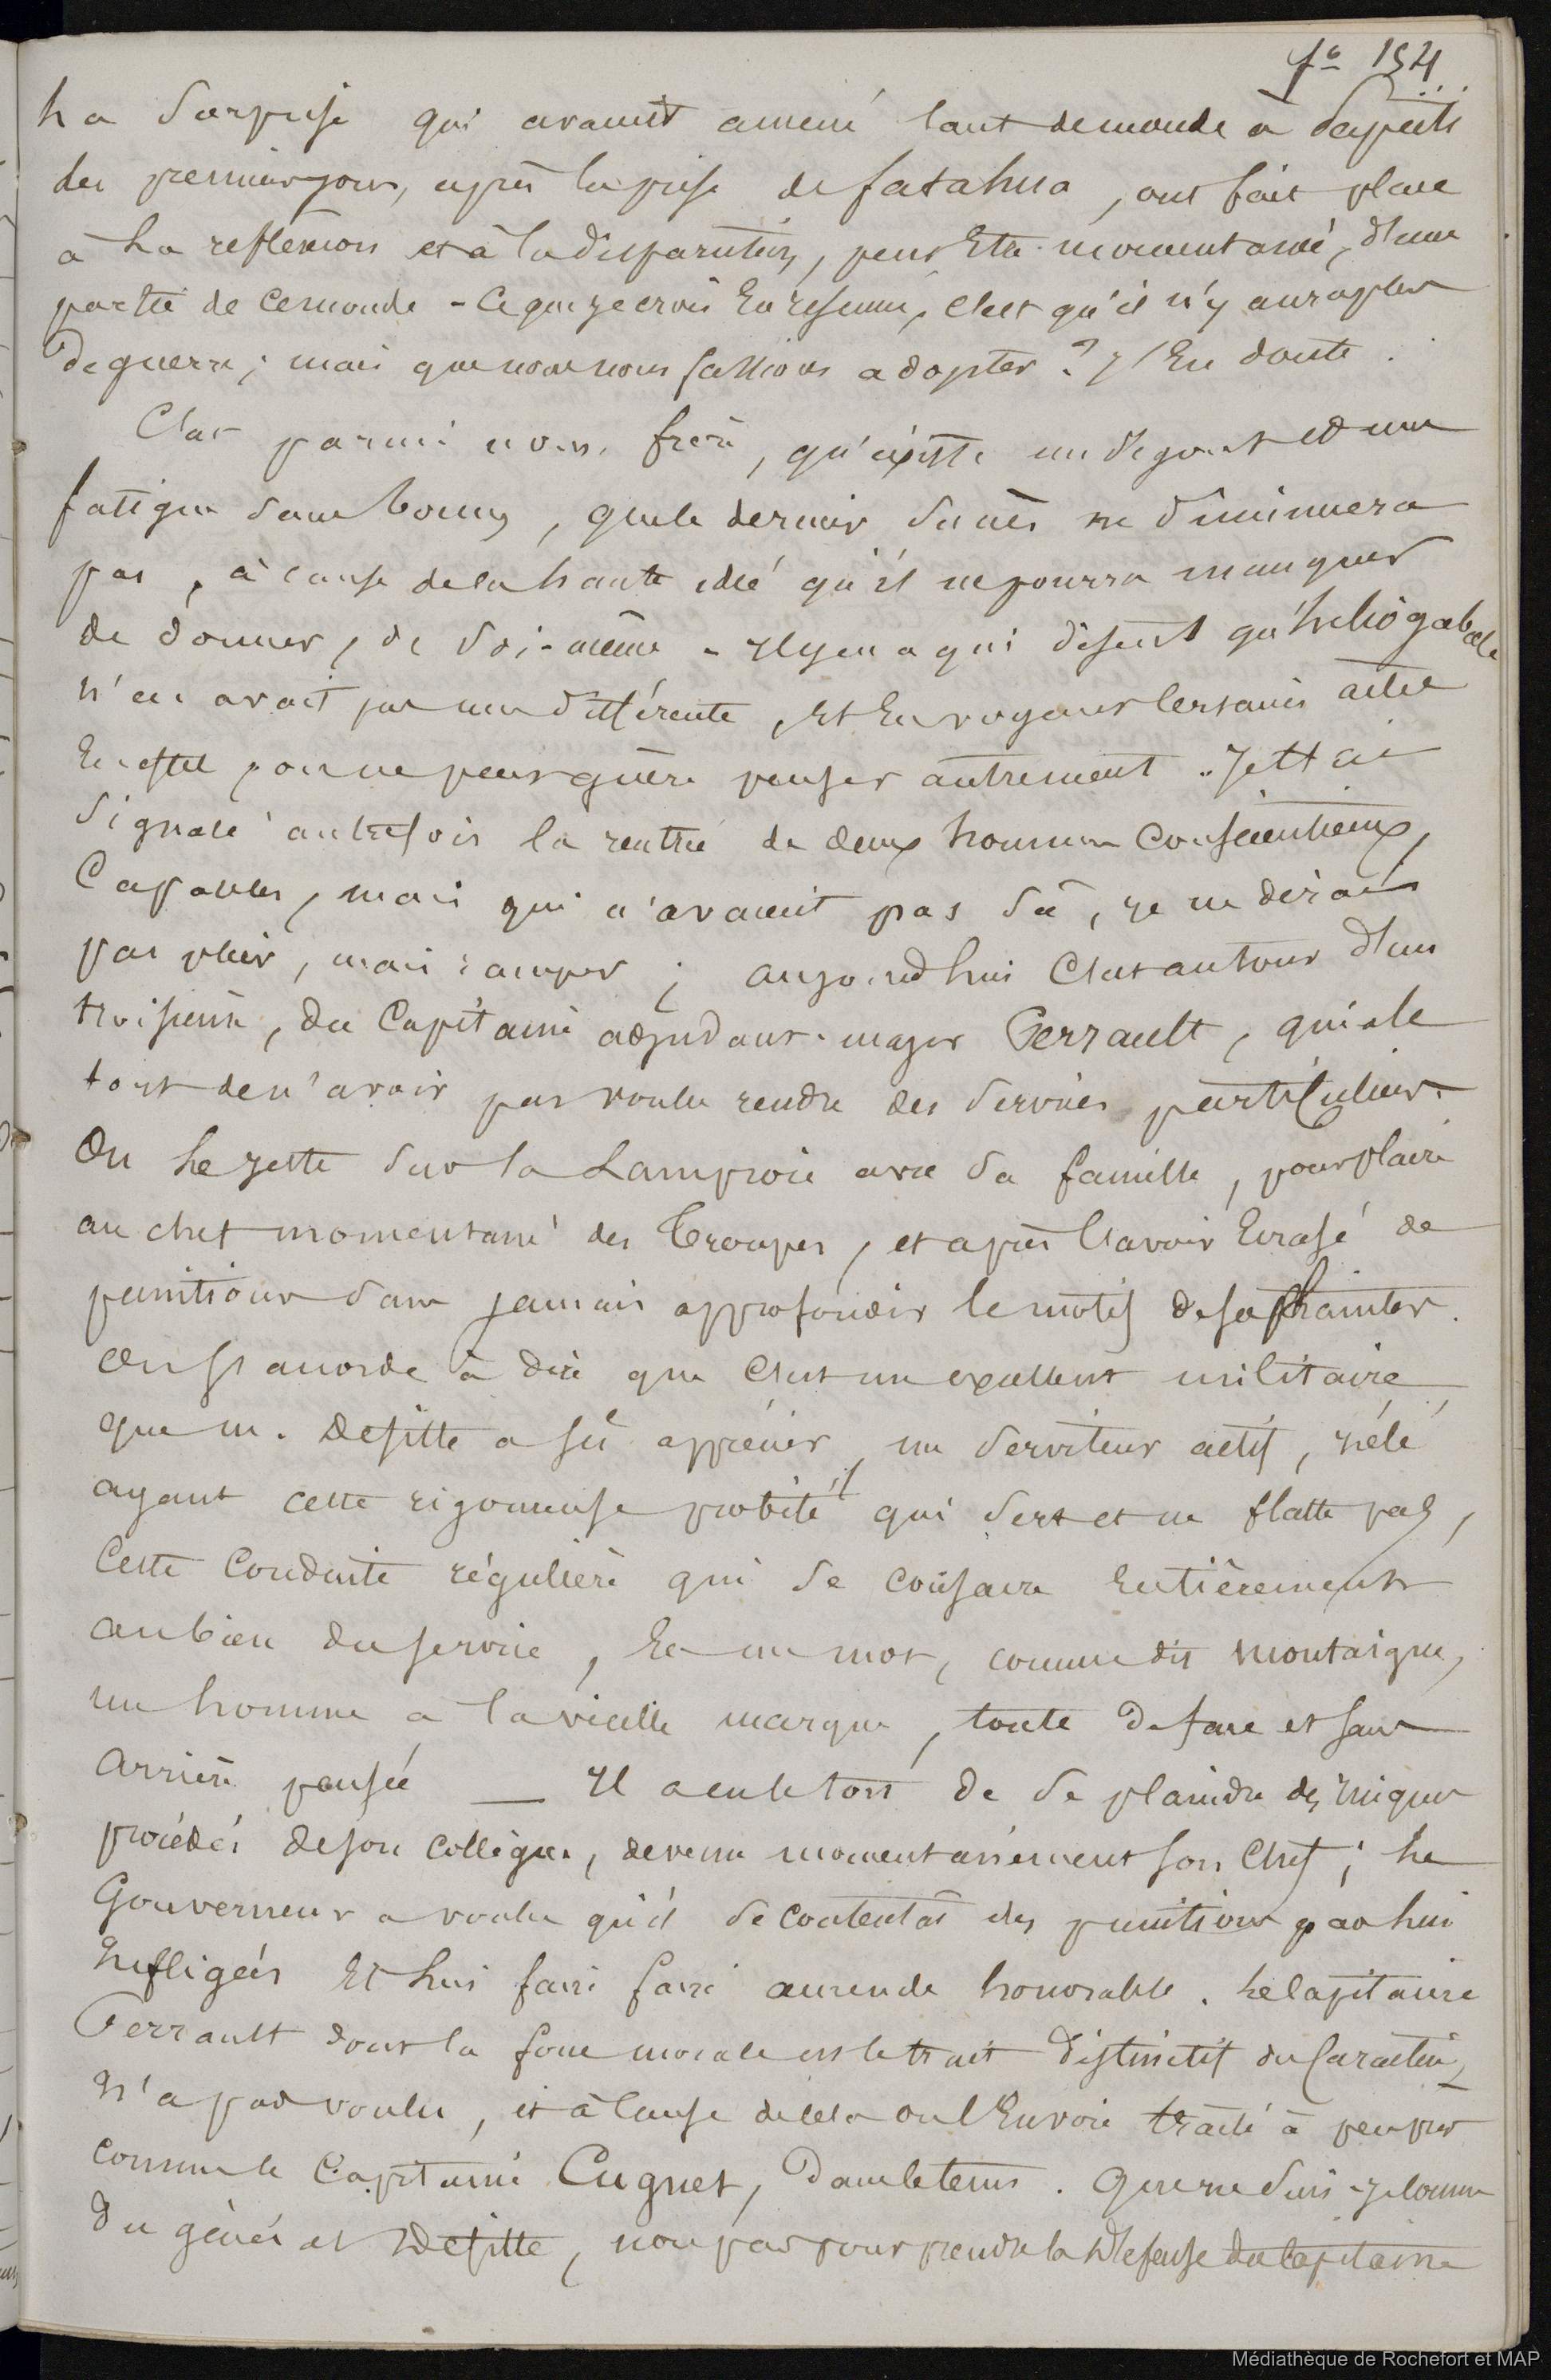 fo 154
La Surprise qui avaient amené tant de monde à Papeïti
les premiers jours, après la prise de fatahua, ont fait place
à La reflexion et à la disparution, peut Etre momentané, d'une
partie de ce monde - Ce que je crois En resumé, c'est qu'il n'y aura plus
de guerre; mais que nous nous fassions adopter? J'En doute.
C'est parmi nous, frère, qu'existe un degout et une
fatigue sans bornes, que le dernier succès ne diminuera
pas, à cause de la haute idée qu'il ne pourra manquer
de donner, de Soi-même - Il y en a qui disent qu'héliogabale
n'en avait pas une différente, Et En voyant certains actes
En effet, on ne peut guère penser autrement. Je t'ai
Signalé autrefois la rentrée de deux hommes Consciencieux,
Capables, mais qui n'avaient pas Sû, je ne dirais
pas plier, mais ramper; aujourd'hui C'est autour d'un
troisième, du Capitaine adjudant-major Perrault, qui a le
tort de n'avoir pas voulu rendre des Services particuliers.
On Le jette Sur la Lamproie avec Sa famille, pour plaire
au chef momentané des Troupes, et après l'avoir Ecrasé de
punitions Sans jamais approfondir le motif de ses plaintes.
On s'accorde à dire que C'est un excellent militaire
que m. Desitte a sû apprécier, un Serviteur actif, zélé
ayant cette rigoureuse probité qui Sert et ne flatte pas,
Cette Conduite régulière qui Se consacre Entièrement
au bien du service, En un mot, comme dit Montaigne,
un homme a la vieille marque, toute de face et sans
Arrière pensée — Il a eu le tort de Se plaindre des iniques
procédés de son Collègue, devenu momentanément son Chef; Le
Gouverneur a voulu qu'il Se contentât des punitions par lui
Infligées Et lui faire faire amende honorable. Le Capitaine
Perrault dont la force morale est le trait distinctif du Caractère,
N'a pas voulu, et à Cause de cela on l'Envoie traité à peu près
comme le Capitaine Cugnet, dans le tems. Que ne Suis-je Comme
du général Desitte, non pas pour prendre la Défense du Capitaine
Médiathèque de Rochefort et MAP